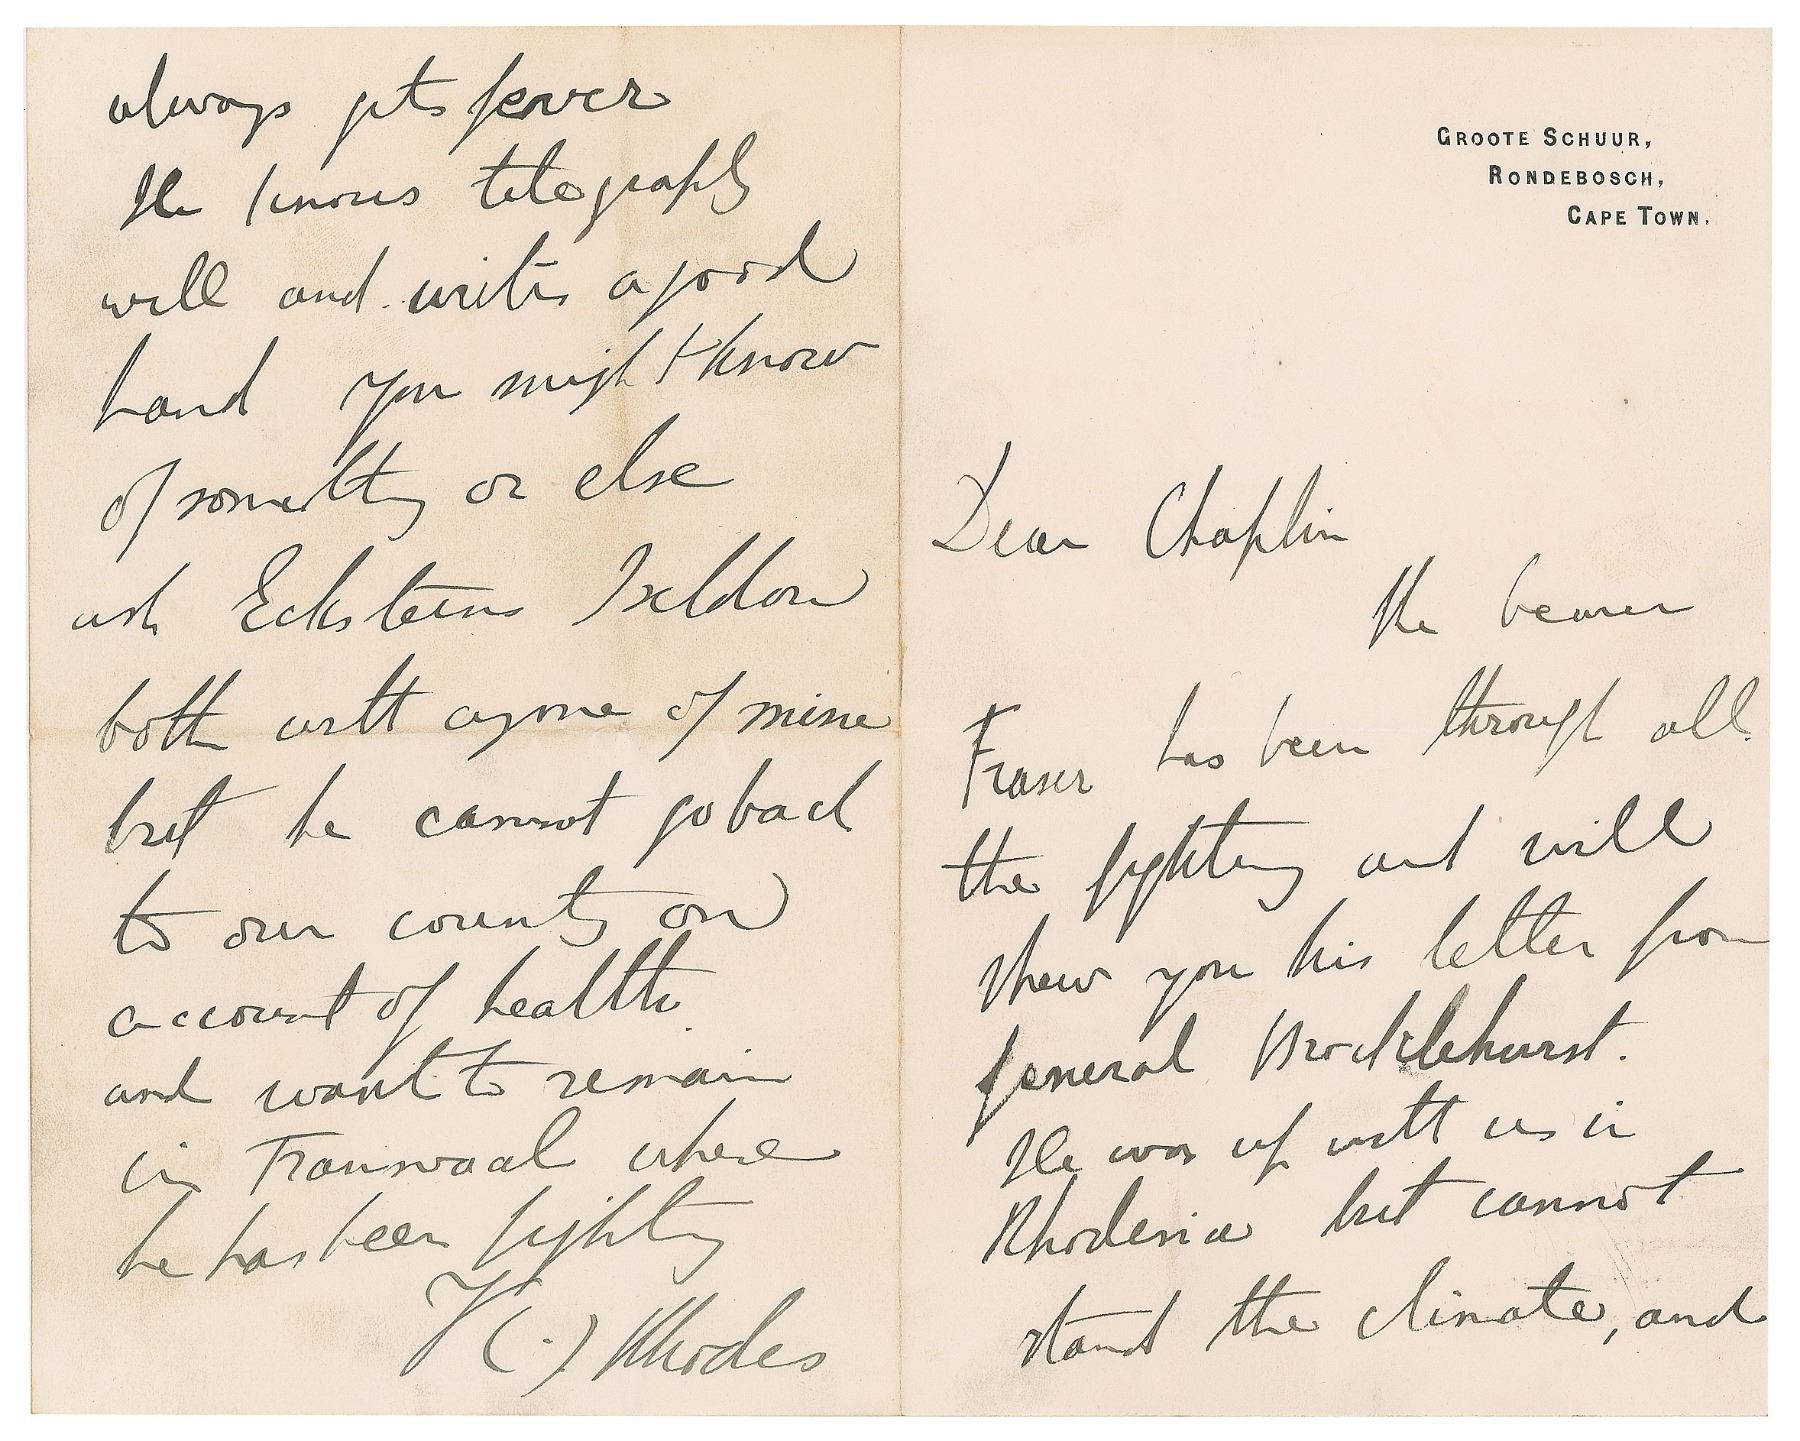 GROOTE SCHUUR,
RONDEBOSCH,
CAPE TOWN.
Dear Chaplin
The bearer
Fraser has been through all
the fighting and will
shew you his letter from
General Brocklehurst.
He was up with us in
Rhodesia but cannot
stand the climate, and
always gets fever
He knows telegraphy
well and writes a good
hand you might know
of something or else
ask Ecksteins
both with of mine
but he cannot go back
to our country on
account of health
and want to remain
in Transvaal where
he has been fighting
Y (.) Rhodes